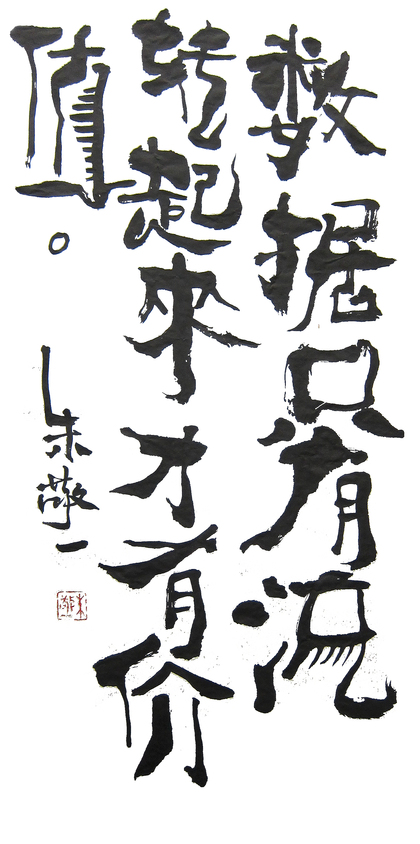 数据只有流
转起來才有价
值。
朱敬一